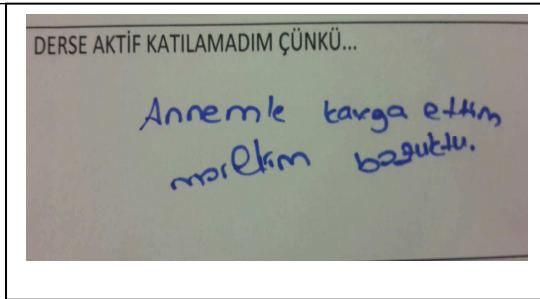 DERSE AKTİF KATILAMADIM ÇÜNKÜ...
Annemle kavga ettim
moralim bozuktu.